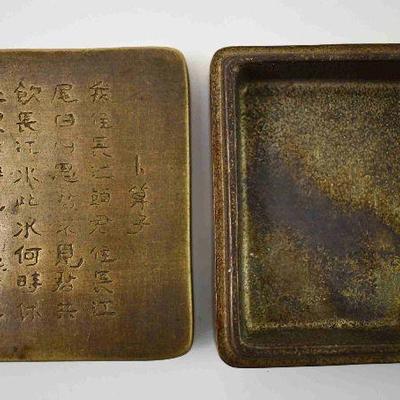 卜算子
我住長江頭君住長江
尾日日思君不見君共
飲長江水此水何時休